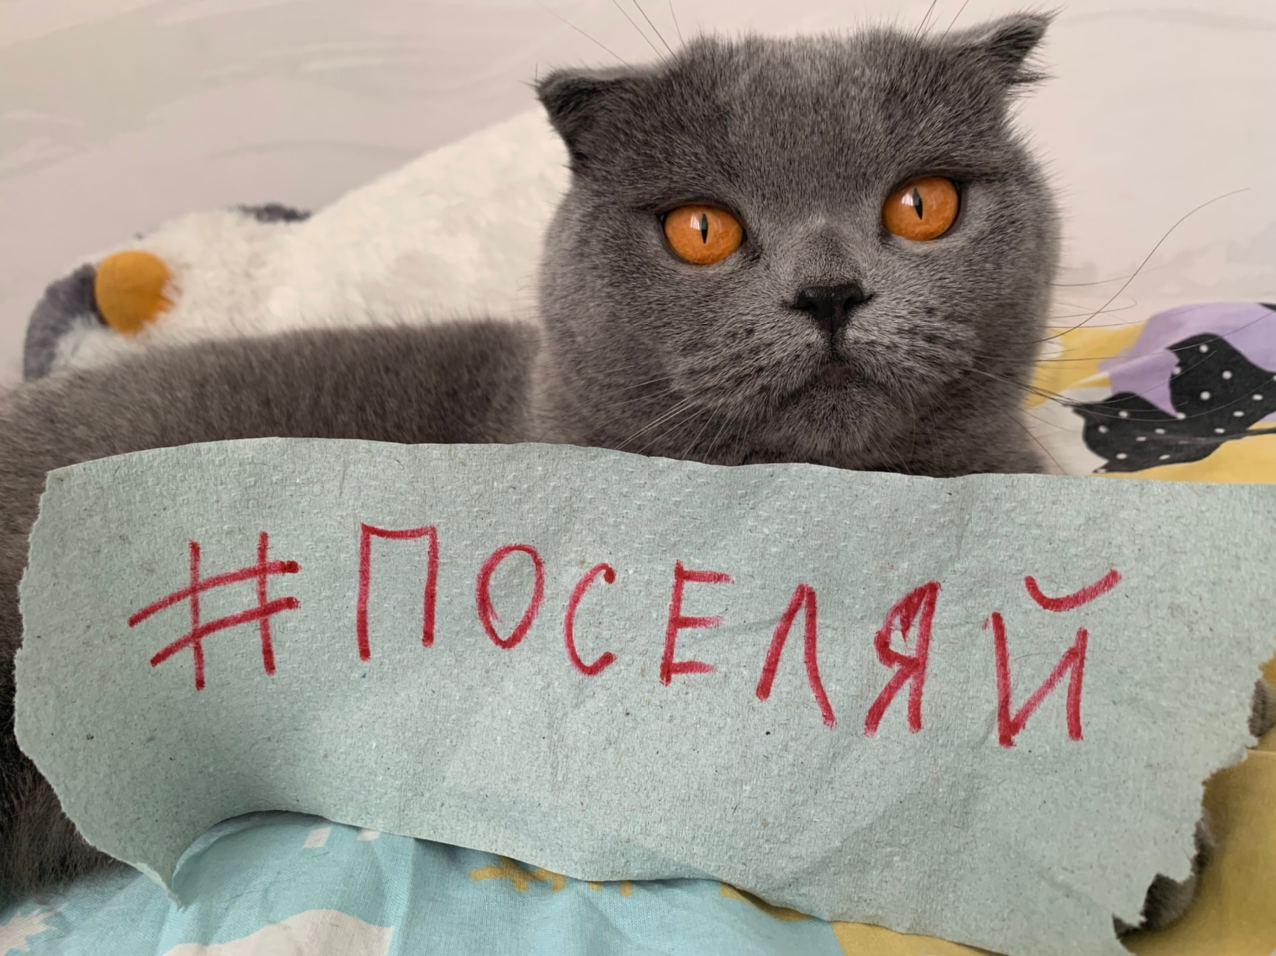 #ПОСЕЛЯЙ